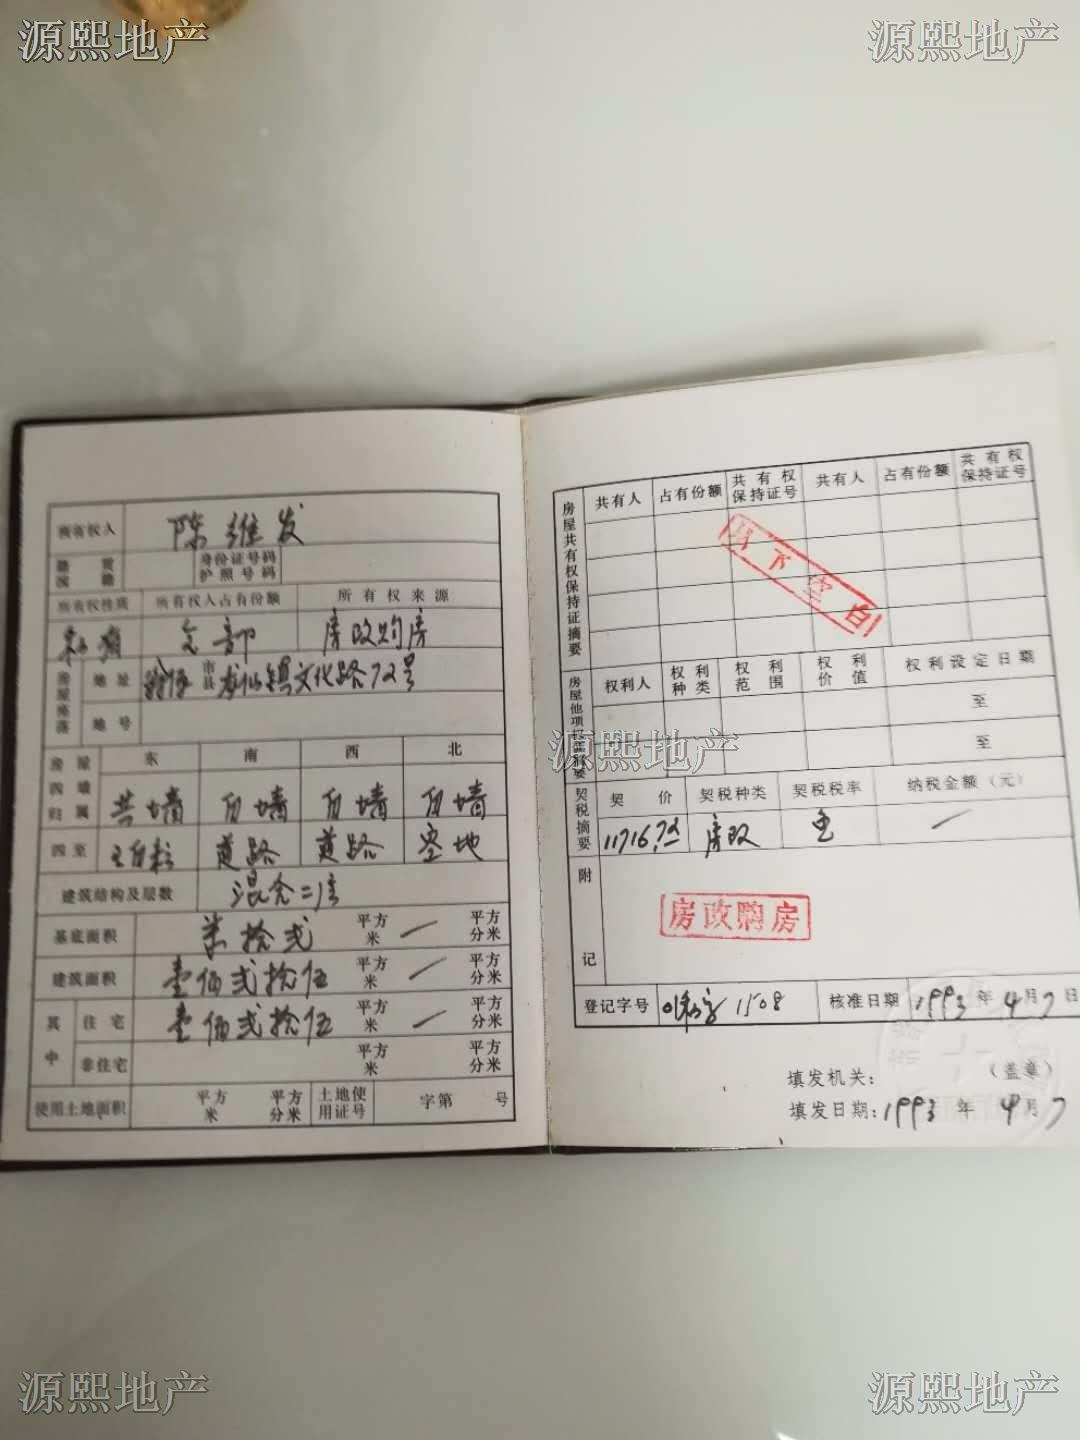 源熙地产 源熙地产
所有权人 陈维发
籍贯 国籍 身份证号码 护照号码
所有权性质 所有权人占有份额 所有权来源
私有 全部 房改购房
房屋座落 地址 翁源 市县 龙仙镇文化路72号
地号
房屋四墙归属 东 南 西 北
共墙 自墙 自墙 自墙
四至 道路 道路 空地
建筑结构及层数 混合二层
基底面积 柒拾弍 平方米 — 平方分米
建筑面积 壹佰弍拾伍 平方米 — 平方分米
其中 住宅 壹佰弍拾伍 平方米 — 平方分米
非住宅 平方米 平方分米
使用土地面积 平方米 平方分米 土地使用证号 字第 号
房屋共有权保持证摘要 共有人 占有份额 共有权保持证号 共有人 占有份额 共有权保持证号
以下空白
房屋他项权利摘要 权利人 权利种类 权利范围 权利价值 权利设定日期
至
至
源熙地产
契税摘要 契价 契税种类 契税税率 纳税金额（元）
房改 —
附记
房改购房
登记字号 1508 核准日期 1993年4月7日
填发机关： （盖章）
填发日期：1993年4月7
源熙地产 源熙地产